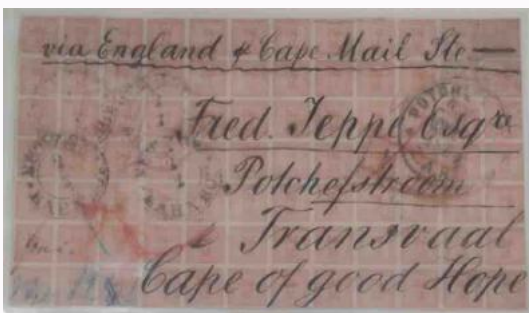 via England & Cape Mail Ste
Fred. Jeppe Esqre
Potchefstroom
Transvaal
Cape of good Hope